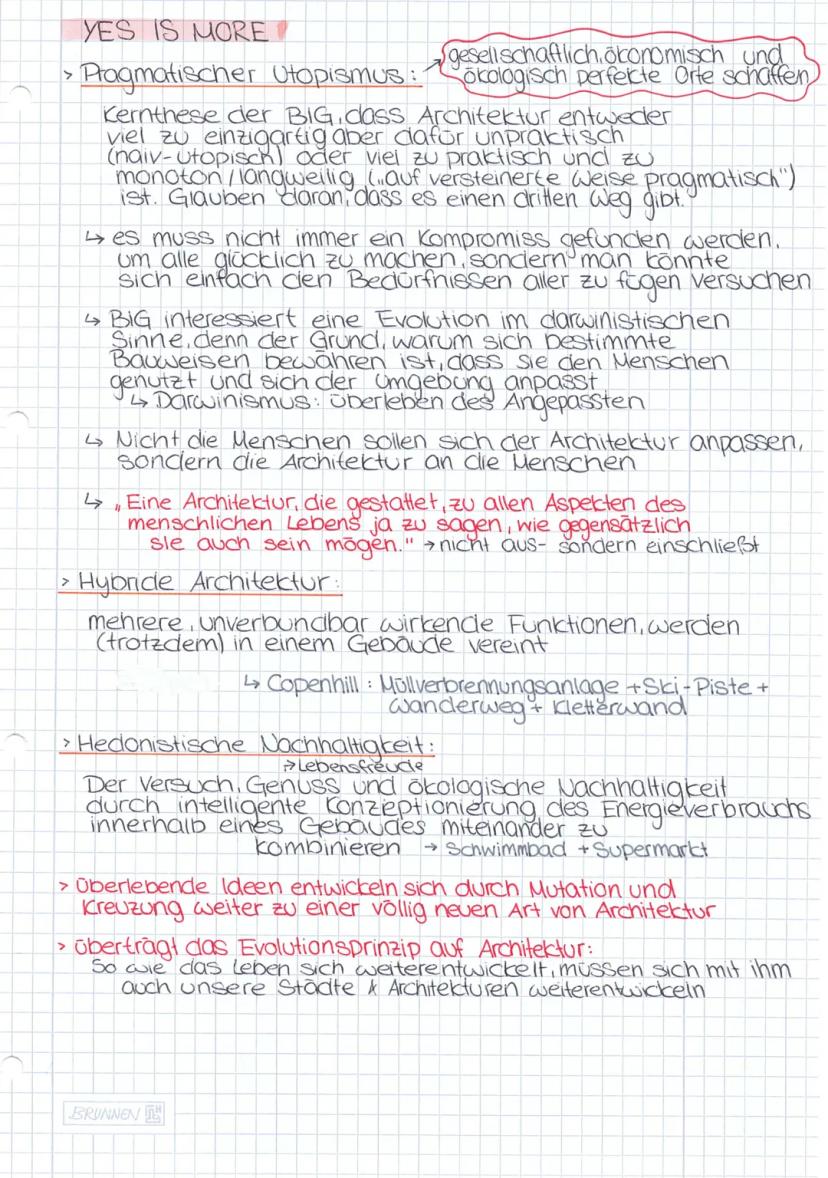 YES IS MORE
> Pragmatischer Utopismus: → gesellschaftlich, ökonomisch und
ökologisch perfekte Orte schaffen
Kernthese der BIG, dass Architektur entweder
viel zu einzigartig aber dafür unpraktisch
(naiv-utopisch) oder viel zu praktisch und zu
monoton/langweilig („auf versteinerte Weise pragmatisch")
ist. Glauben daran, dass es einen dritten Weg gibt.
↳ es muss nicht immer ein Kompromiss gefunden werden,
um alle glücklich zu machen, sondern man könnte
sich einfach den Bedürfnissen aller zu fügen versuchen
↳ BIG interessiert eine Evolution im darwinistischen
Sinne, denn der Grund, warum sich bestimmte
Bauweisen bewähren ist, dass sie den Menschen
genutzt und sich der Umgebung anpasst
↳ Darwinismus: Überleben des Angepassten
↳ Nicht die Menschen sollen sich der Architektur anpassen,
sondern die Architektur an die Menschen
↳ „Eine Architektur, die gestattet, zu allen Aspekten des
menschlichen Lebens ja zu sagen, wie gegensätzlich
sie auch sein mögen." → nicht aus- sondern einschließt
> Hybride Architektur:
mehrere, unverbundbar wirkende Funktionen, werden
(trotzdem) in einem Gebäude vereint
↳ Copenhill: Müllverbrennungsanlage + Ski-Piste +
Wanderweg + Kletterwand
> Hedonistische Nachhaltigkeit:
→ Lebensfreude
Der Versuch, Genuss und ökologische Nachhaltigkeit
durch intelligente Konzeptionierung des Energieverbrauchs
innerhalb eines Gebäudes miteinander zu
kombinieren → Schwimmbad + Supermarkt
> Überlebende Ideen entwickeln sich durch Mutation und
Kreuzung weiter zu einer völlig neuen Art von Architektur
> überträgt das Evolutionsprinzip auf Architektur:
So wie das Leben sich weiterentwickelt, müssen sich mit ihm
auch unsere Städte & Architekturen weiterentwickeln
BRUNNEN